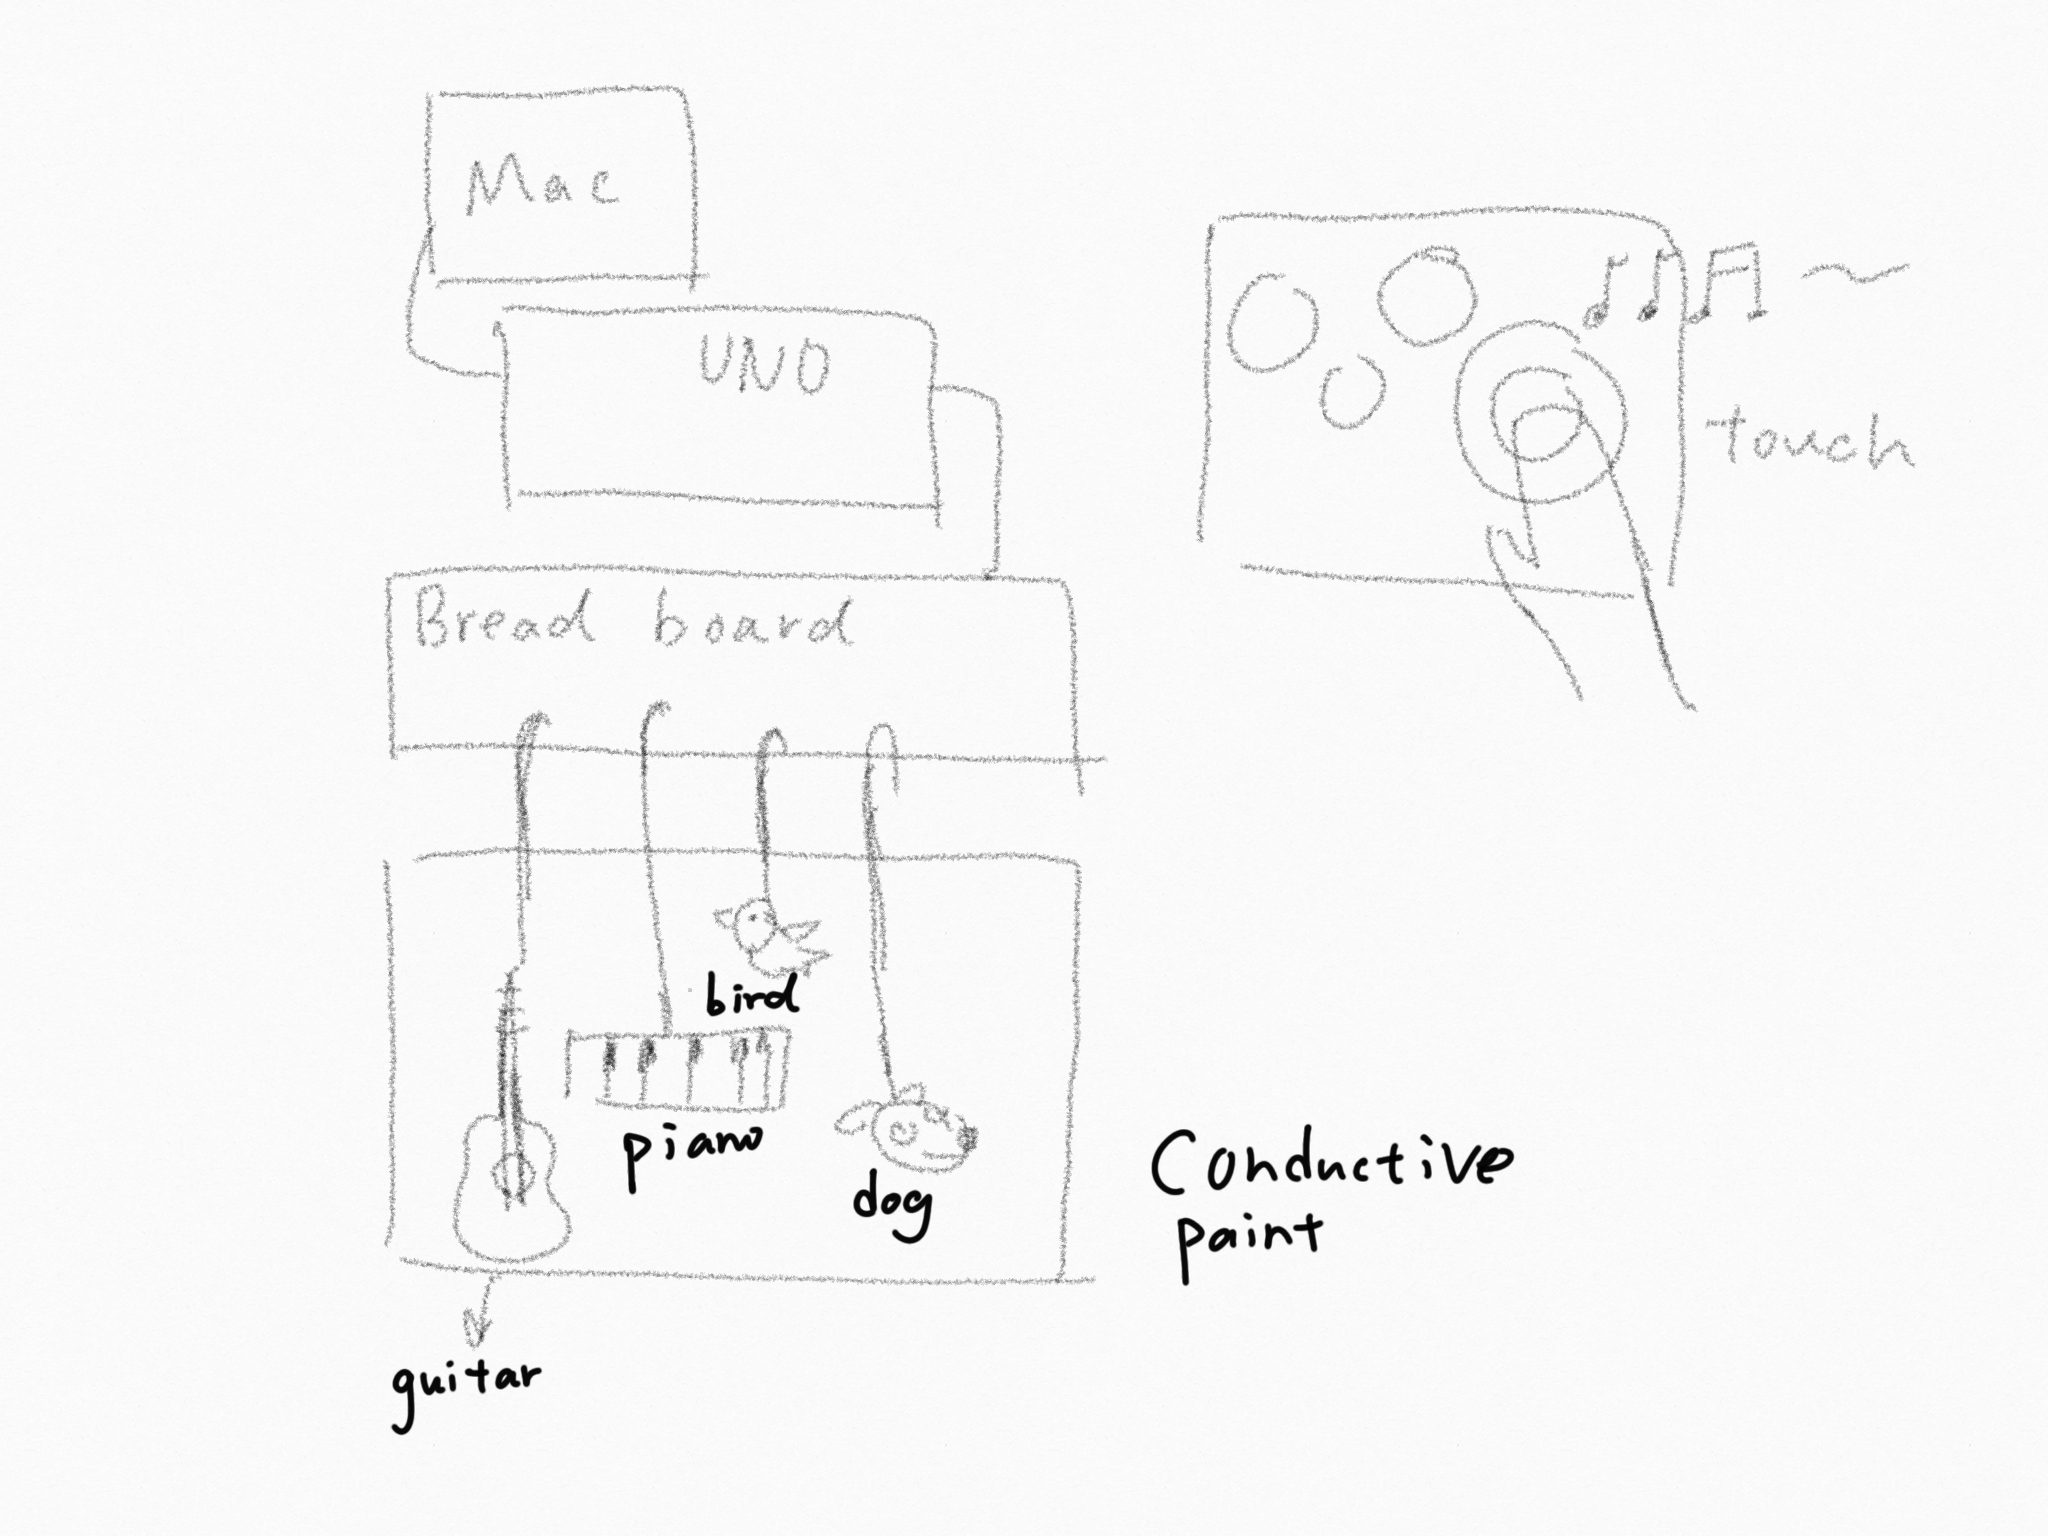 Mac
UNO
Bread board
touch
bird
piano
dog
guitar
Conductive
paint